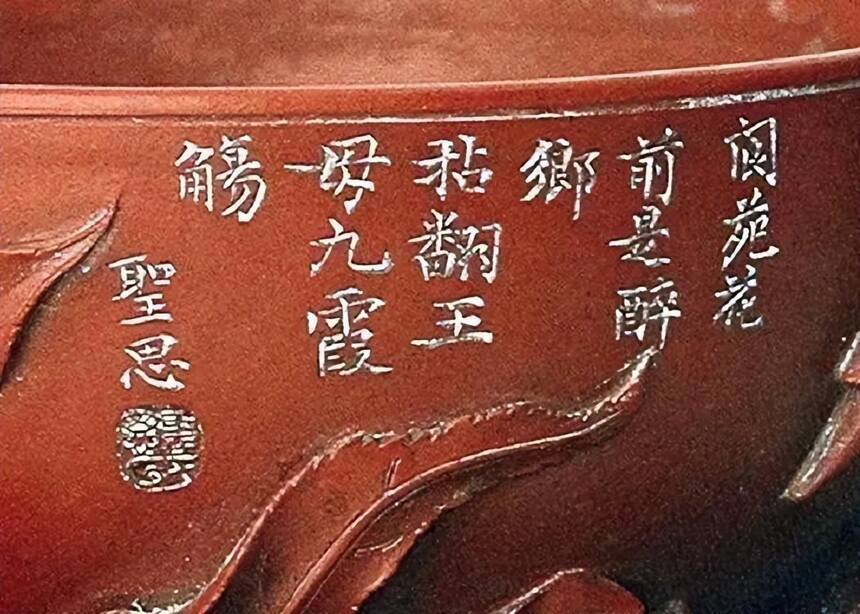 閬苑花
前是醉
鄉
粘翻王
母九霞
觴
聖思